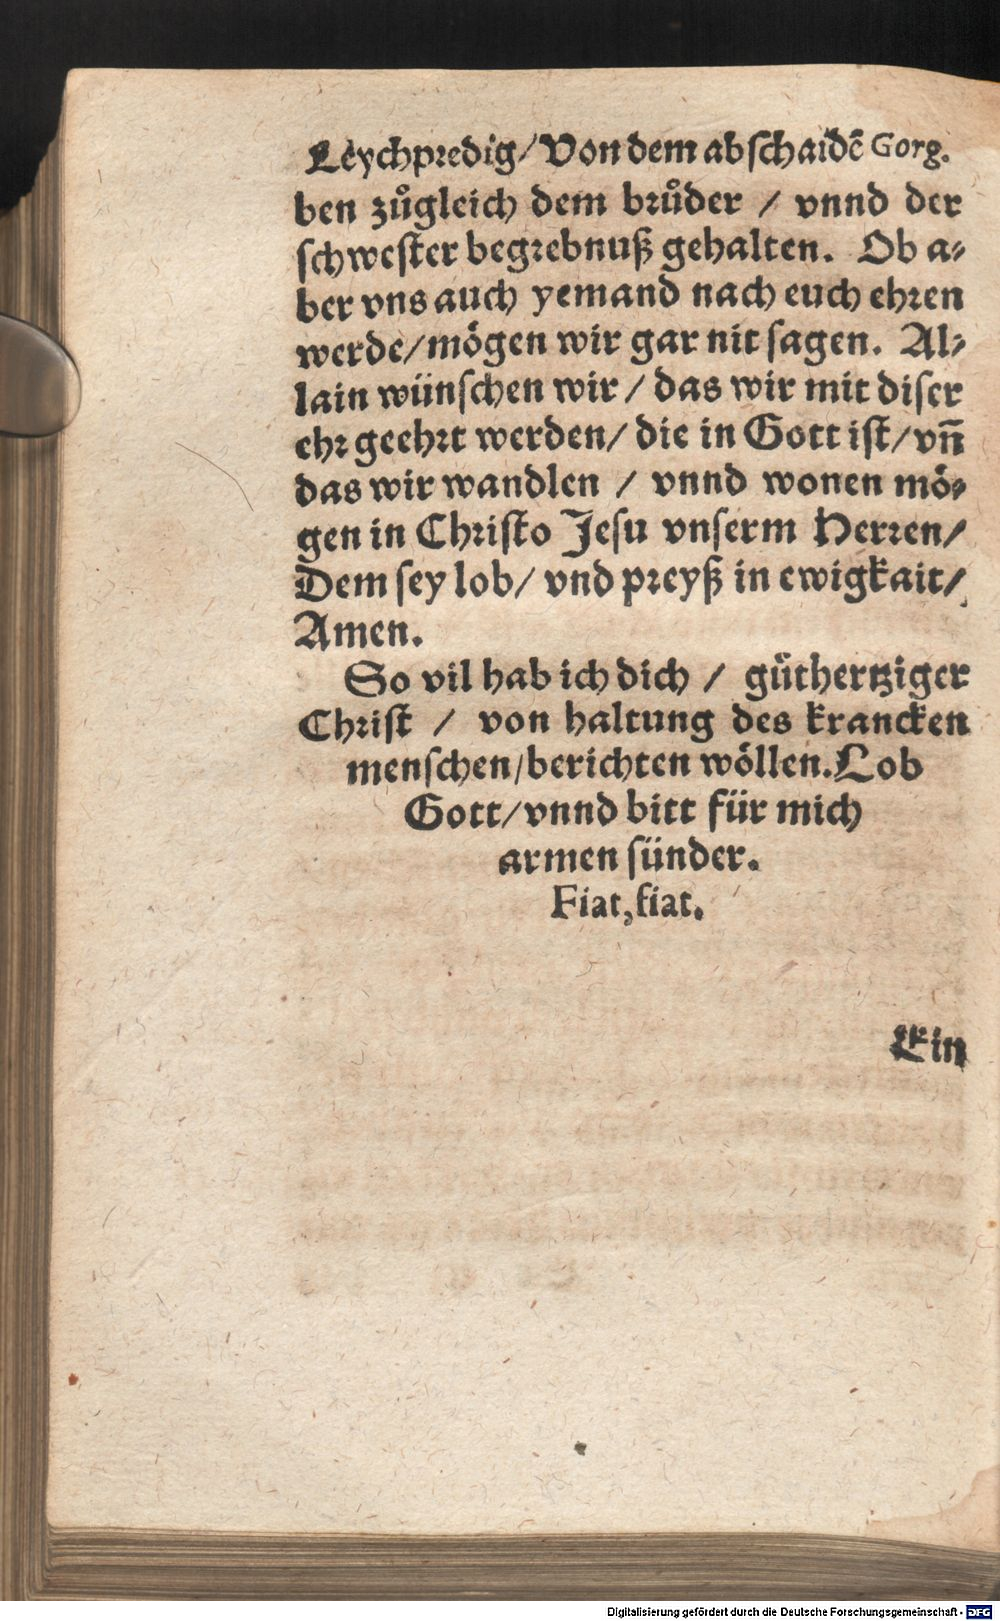 Leychpredig/Von dem abschaidẽ Gorg.
ben zůgleich dem brůder / vnnd der
schwester begrebnuß gehalten. Ob a⸗
ber vns auch yemand nach euch ehren
werde/mögen wir gar nit sagen. Al⸗
lain wünschen wir / das wir mit diser
ehr geehrt werden/ die in Gott ist/vñ
das wir wandlen / vnnd wonen mö⸗
gen in Christo Jesu vnserm Herren/
Dem sey lob/ vnd preyß in ewigkait/
Amen.
So vil hab ich dich / gůthertziger
Christ / von haltung des krancken
menschen/berichten wöllen. Lob
Gott/vnnd bitt für mich
armen sünder.
Fiat, fiat.
Ein
Digitalisierung gefördert durch die Deutsche Forschungsgemeinschaft - DFG